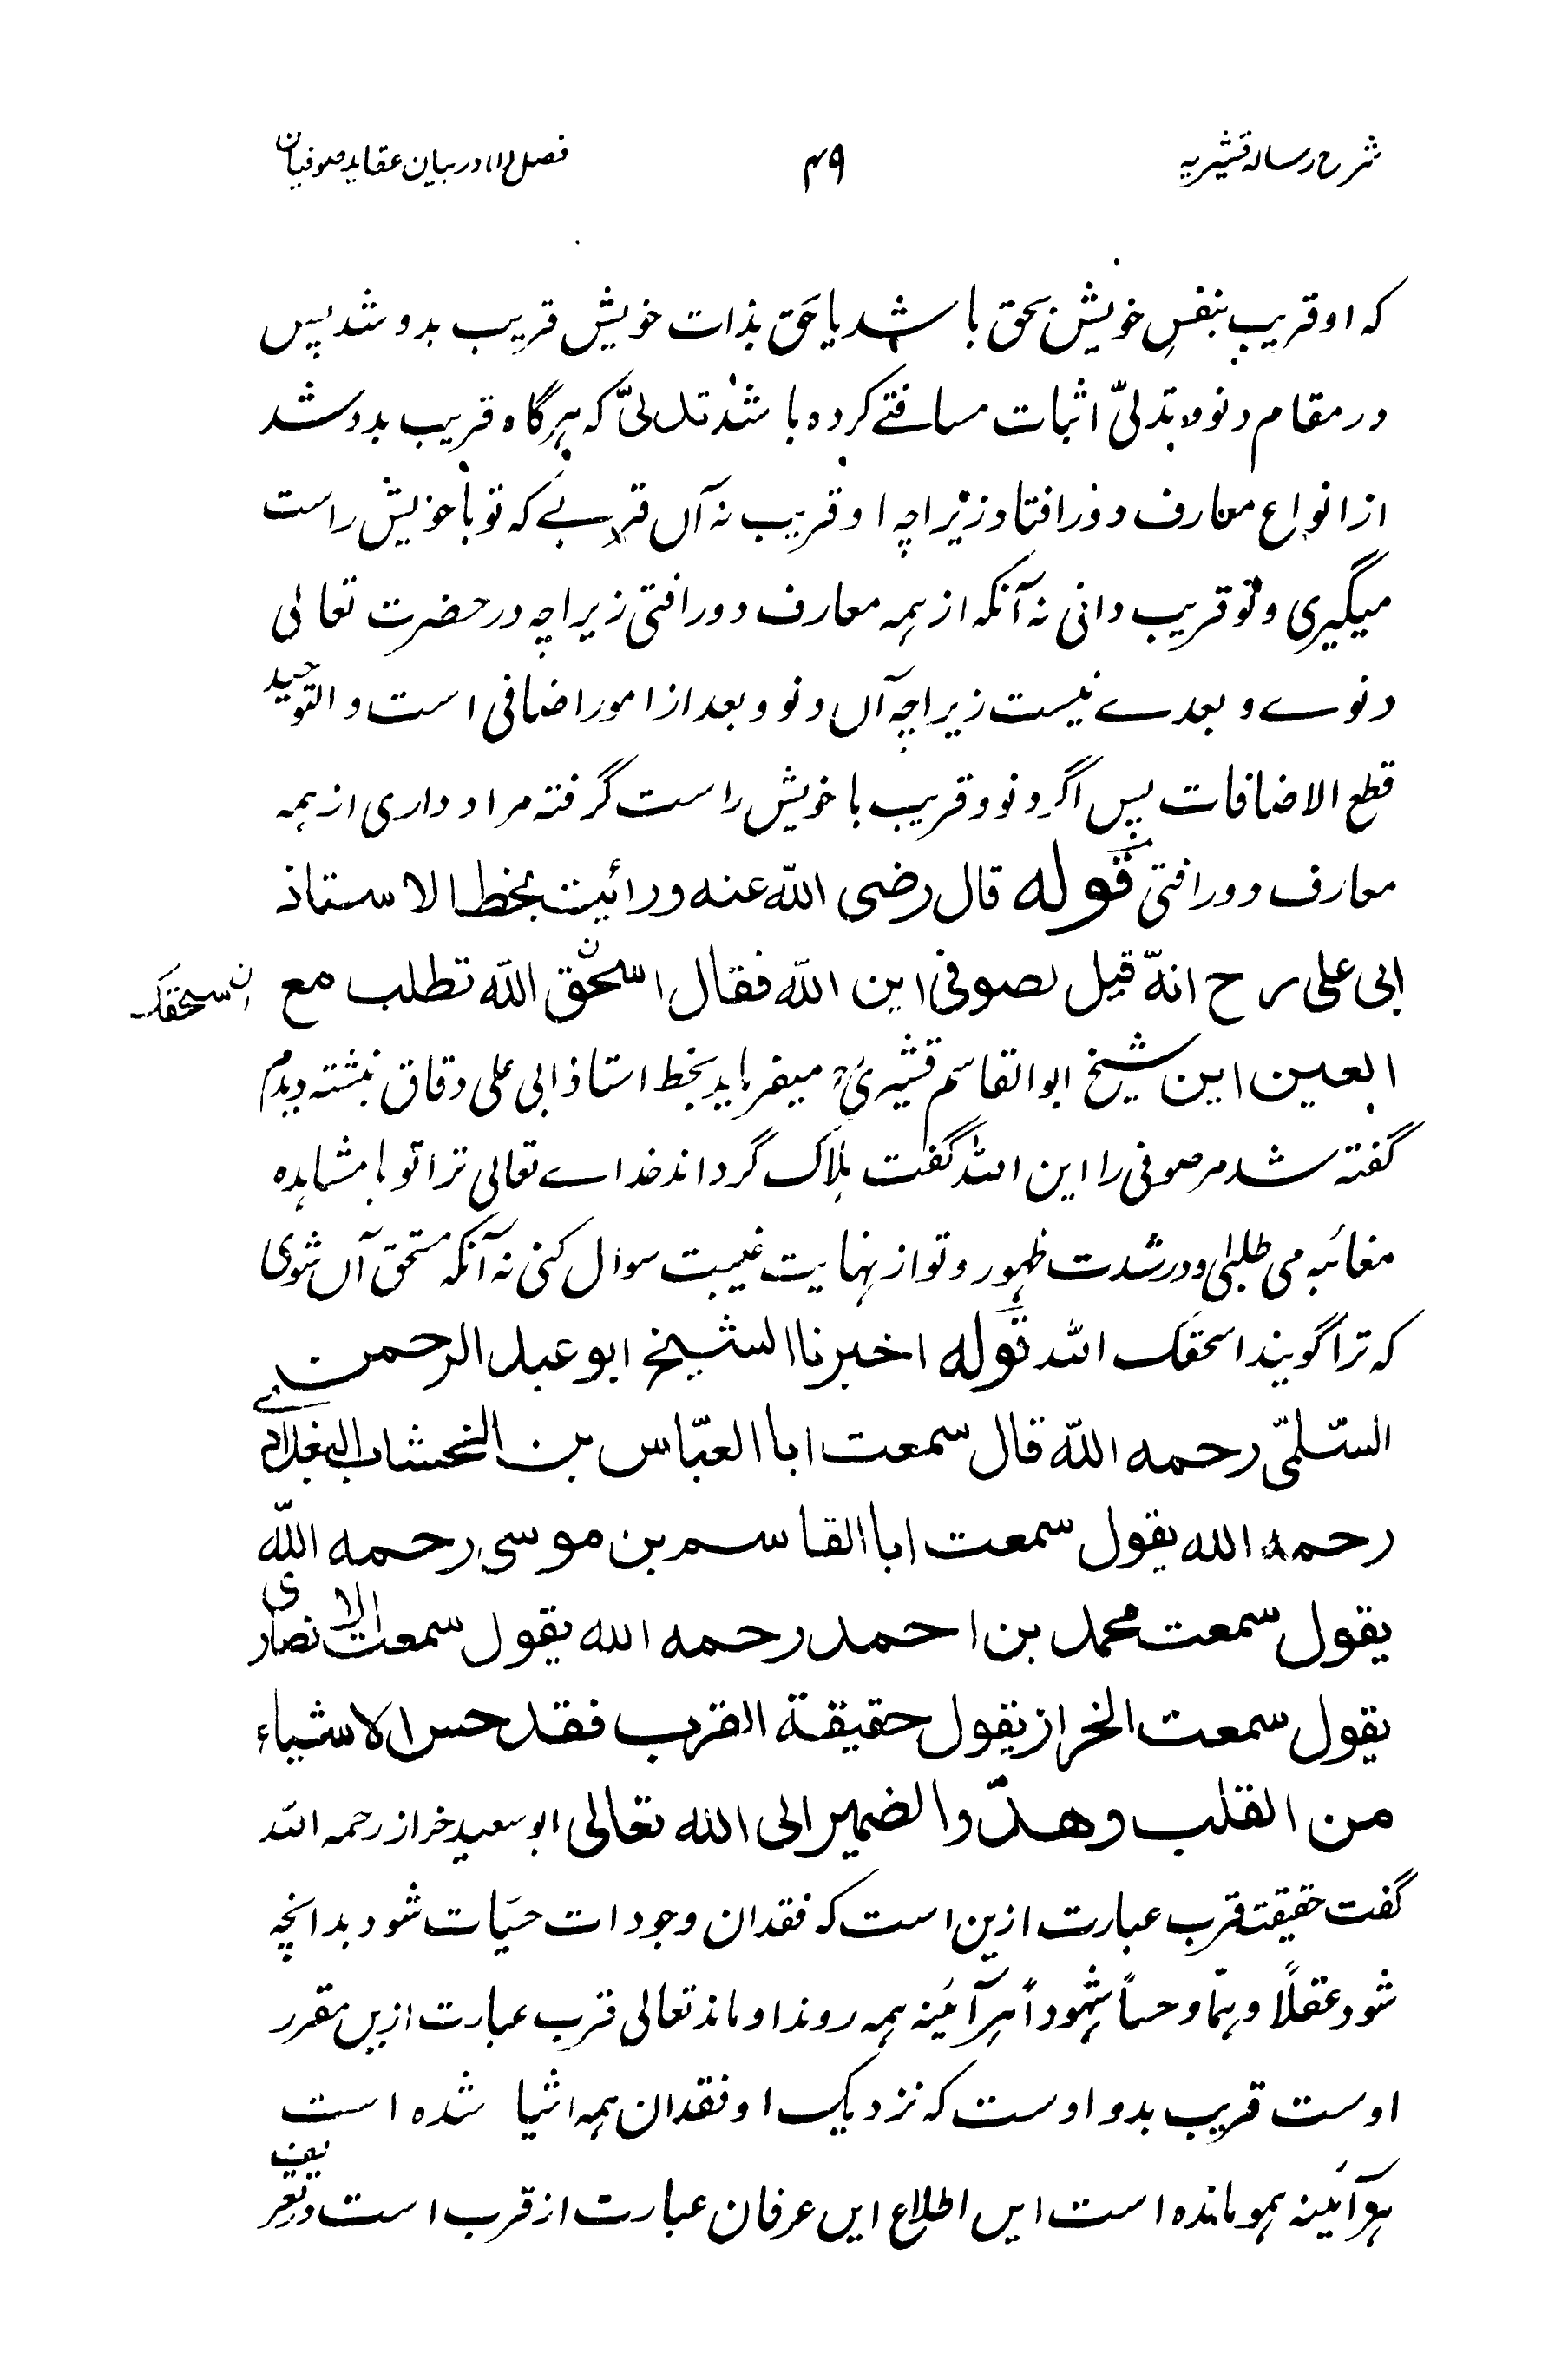 شرح رساله قشیریه
۴۹
فصل (۱) در بیان عقاید صوفیان
که او قریب بنفسِ خویش بحق باشد یا حَق بذات خویش قریب بدو شد پس
در مقام دنو و تدلیّ اثبات مسافتے کرده باشد تدلیّ که هرگاه قریب بدو شد
از انواع معارف دور افتاد زیراچه او قریب نه آں قربے که تو با خویش راست
میگیری و تو قریب دانی نه آنکه از همه معارف دور افتی زیراچه در حضرت تعالی
دنوے و بعدے نیست زیراچه آں دنو و بعد از امور اضافی است و التوحید
قطع الاضافات پس اگر دنو و قریب با خویش راست گرفته مراد داری از همه
معارف دور افتی قوله قال رضی اللّٰه عنه و رائیت بخط الاستاذ
ابی علی رح انهّ قیل لصوفی این اللّٰه فقال اسحق اللّٰه تطلب مع
ان سحقک
العین این شیخ ابوالقاسم قشیریؒ میفرماید بخط استاذ ابی علی دقاق نبشته دیدم
گفته شد مر صوفی را این اللّٰه گفت ہلاک گرداند خداے تعالی ترا تو با مشاهده
مغائبه می طلبی و در شدت ظهور و تو از نهایت غیبت سوال کنی نه آنکه مستحق آں شوی
که ترا گویند اسحقک اللّٰه قوله اخبرنا الشیخ ابو عبد الرحمن
السّلمیّ رحمه اللّٰه قال سمعت ابا العبّاس بن الخشاب البغدادی
رحمه اللّٰه یقول سمعت ابا القاسم بن موسی رحمه اللّٰه
یقول سمعت محمد بن احمد رحمه اللّٰه یقول سمعت الانصاری
یقول سمعت الخراز یقول حقیقة القرب فقد حس الاشیاء
من القلب وهدّو الضمیر الی اللّٰه تعالی ابو سعید خراز رحمه اللّٰه
گفت حقیقت قرب عبارت ازین است که فقدان وجودات حسّیات شود بدانچه
شود عقلاً و وهمّا و حساً شهوداً هر آئینه همه روند او ماند تعالی قرب عبارت ازیں مقرر
اوست قریب بدو اوست که نزدیک او فقدان همه اشیا شده است
هر آئینه همو مانده است ایں اطلاع ایں عرفان عبارت از قرب است و تعریف